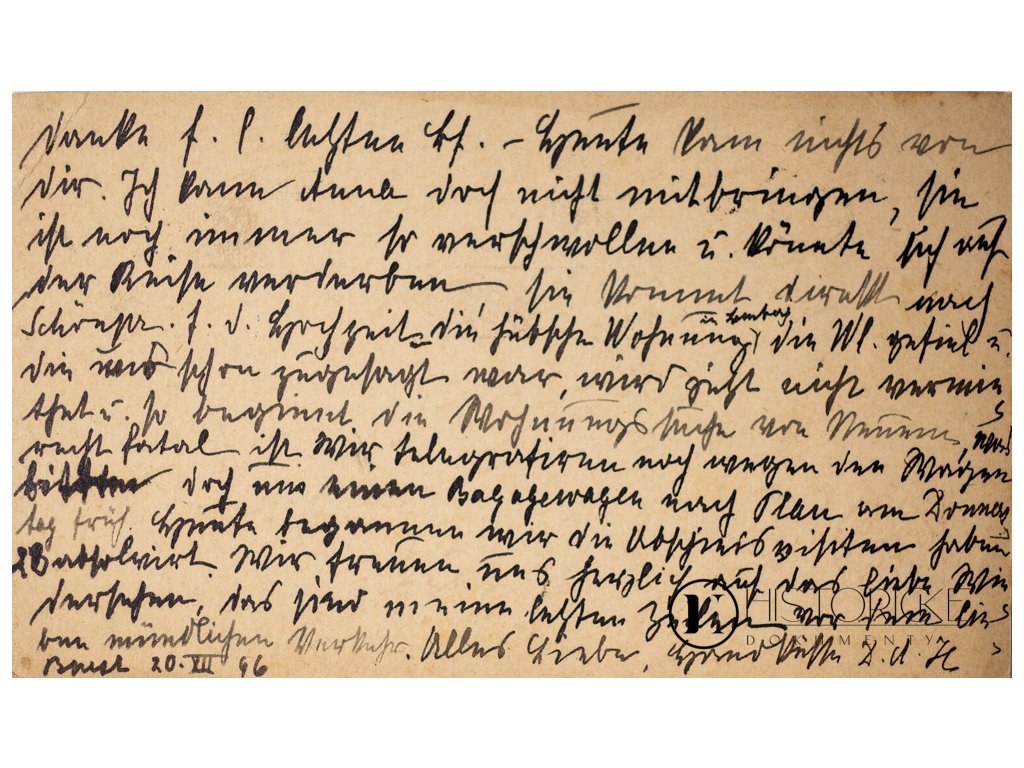 Danke f. l. letzten Bf. – Heute kam nichts von
dir. Ich kann Anna doch nicht mitbringen, sie
ist noch immer so verschwollen u. könnte sich auf
der Reise verderben, sie kommt direkt nach
f. d. Hochzeit. die hübsche Wohnung, die Wl. gefiel u.
die uns schon zugesagt war, wird jetzt nicht vermie
thet u. so beginnt die Wohnungssuche von Neuem, was
recht fatal ist. Wir telegrafiren noch wegen den Wagen
doch um einen Bagagewagen nach Plan am Donners
tag früh. Heute begannen wir die Abschiedsvisiten haben
28 absolvirt. Wir freuen uns herzlich auf das liebe Wie
dersehen, das sind meine letzten Zeilen vor dem lie
ben mündlichen Verkehr. Alles Liebe, Handküsse D. d. H
20. XII 96
HISTORICKÉ
DOKUMENTY